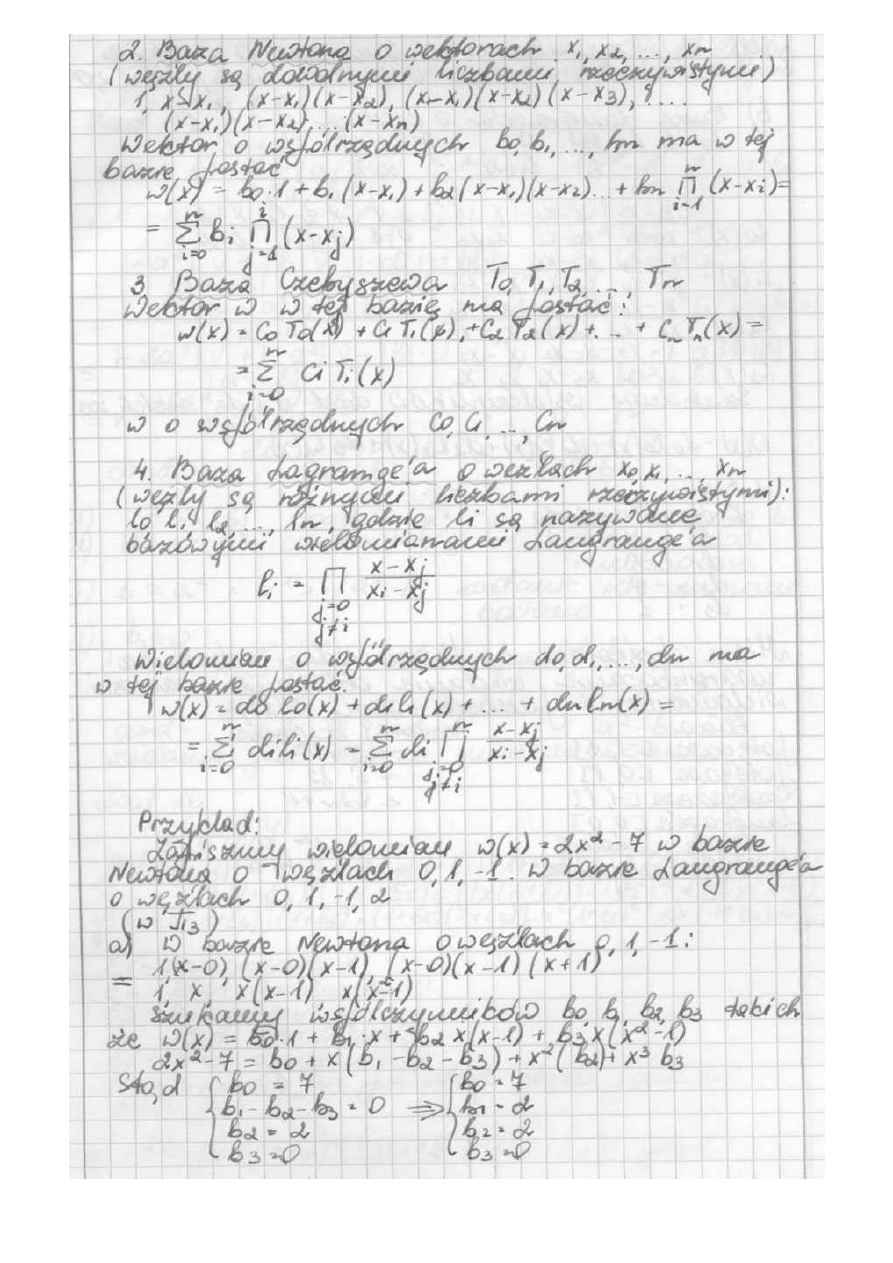 2. Baza Newtona o wektorach x₁, x₂, ..., xₙ
(węzły są dowolnymi liczbami rzeczywistymi)
1, x-x₁, (x-x₁)(x-x₂), (x-x₁)(x-x₂)(x-x₃), ...
(x-x₁)(x-x₂)...(x-xₙ)
Wektor o współrzędnych b₀, b₁, ..., bₙ ma w tej
bazie postać
w(x) = b₀·1 + b₁(x-x₁) + b₂(x-x₁)(x-x₂)... + bₙ ∏ᵢ₌₁ⁿ (x-xᵢ) =
= ∑ᵢ₌₀ⁿ bᵢ ∏ⱼ₌₁ⁱ (x-xⱼ)
3 Baza Czebyszewa T₀, T₁, T₂, ..., Tₙ
Wektor w w tej bazie ma postać:
w(x) = C₀T₀(x) + C₁T₁(x) + C₂T₂(x) + ... + CₙTₙ(x) =
= ∑ᵢ₌₀ⁿ Cᵢ Tᵢ(x)
w o współrzędnych C₀, C₁, ..., Cₙ
4. Baza Lagrange'a o węzłach x₀, x₁, ..., xₙ
(węzły są różnymi liczbami rzeczywistymi):
l₀, l₁, l₂, ..., lₙ, gdzie li są nazywane
bazowymi wielomianami Laugrange'a
lᵢ = ∏ⱼ₌₀, ⱼ≠ᵢ (x-xⱼ)/(xᵢ-xⱼ)
Wielomian o współrzędnych d₀, d₁, ..., dₙ ma
w tej bazie postać.
w(x) = d₀l₀(x) + d₁l₁(x) + ... + dₙlₙ(x) =
= ∑ᵢ₌₀ⁿ dᵢlᵢ(x) = ∑ᵢ₌₀ⁿ dᵢ ∏ⱼ₌₀, ⱼ≠ᵢⁿ (x-xⱼ)/(xᵢ-xⱼ)
Przykład:
Zapiszmy wielomian w(x) = 2x² - 7 w bazie
Newtona o węzłach 0, 1, -1. w bazie Laugrange'a
o węzłach 0, 1, -1, 2
(w Π₃)
a) w bazie Newtona o węzłach 0, 1, -1:
= 1(x-0), (x-0)(x-1), (x-0)(x-1)(x+1)
1, x, x(x-1) x(x²-1)
Szukamy współczynników b₀, b₁, b₂, b₃ takich
że w(x) = b₀·1 + b₁·x + b₂x(x-1) + b₃x(x²-1)
2x²-7 = b₀ + x(b₁-b₂-b₃) + x²(b₂) + x³b₃
Stąd { b₀ = 7 { b₀ = 7
b₁-b₂-b₃ = 0 ⇒ b₁ = 2
b₂ = 2 b₂ = 2
b₃ = 0 b₃ = 0